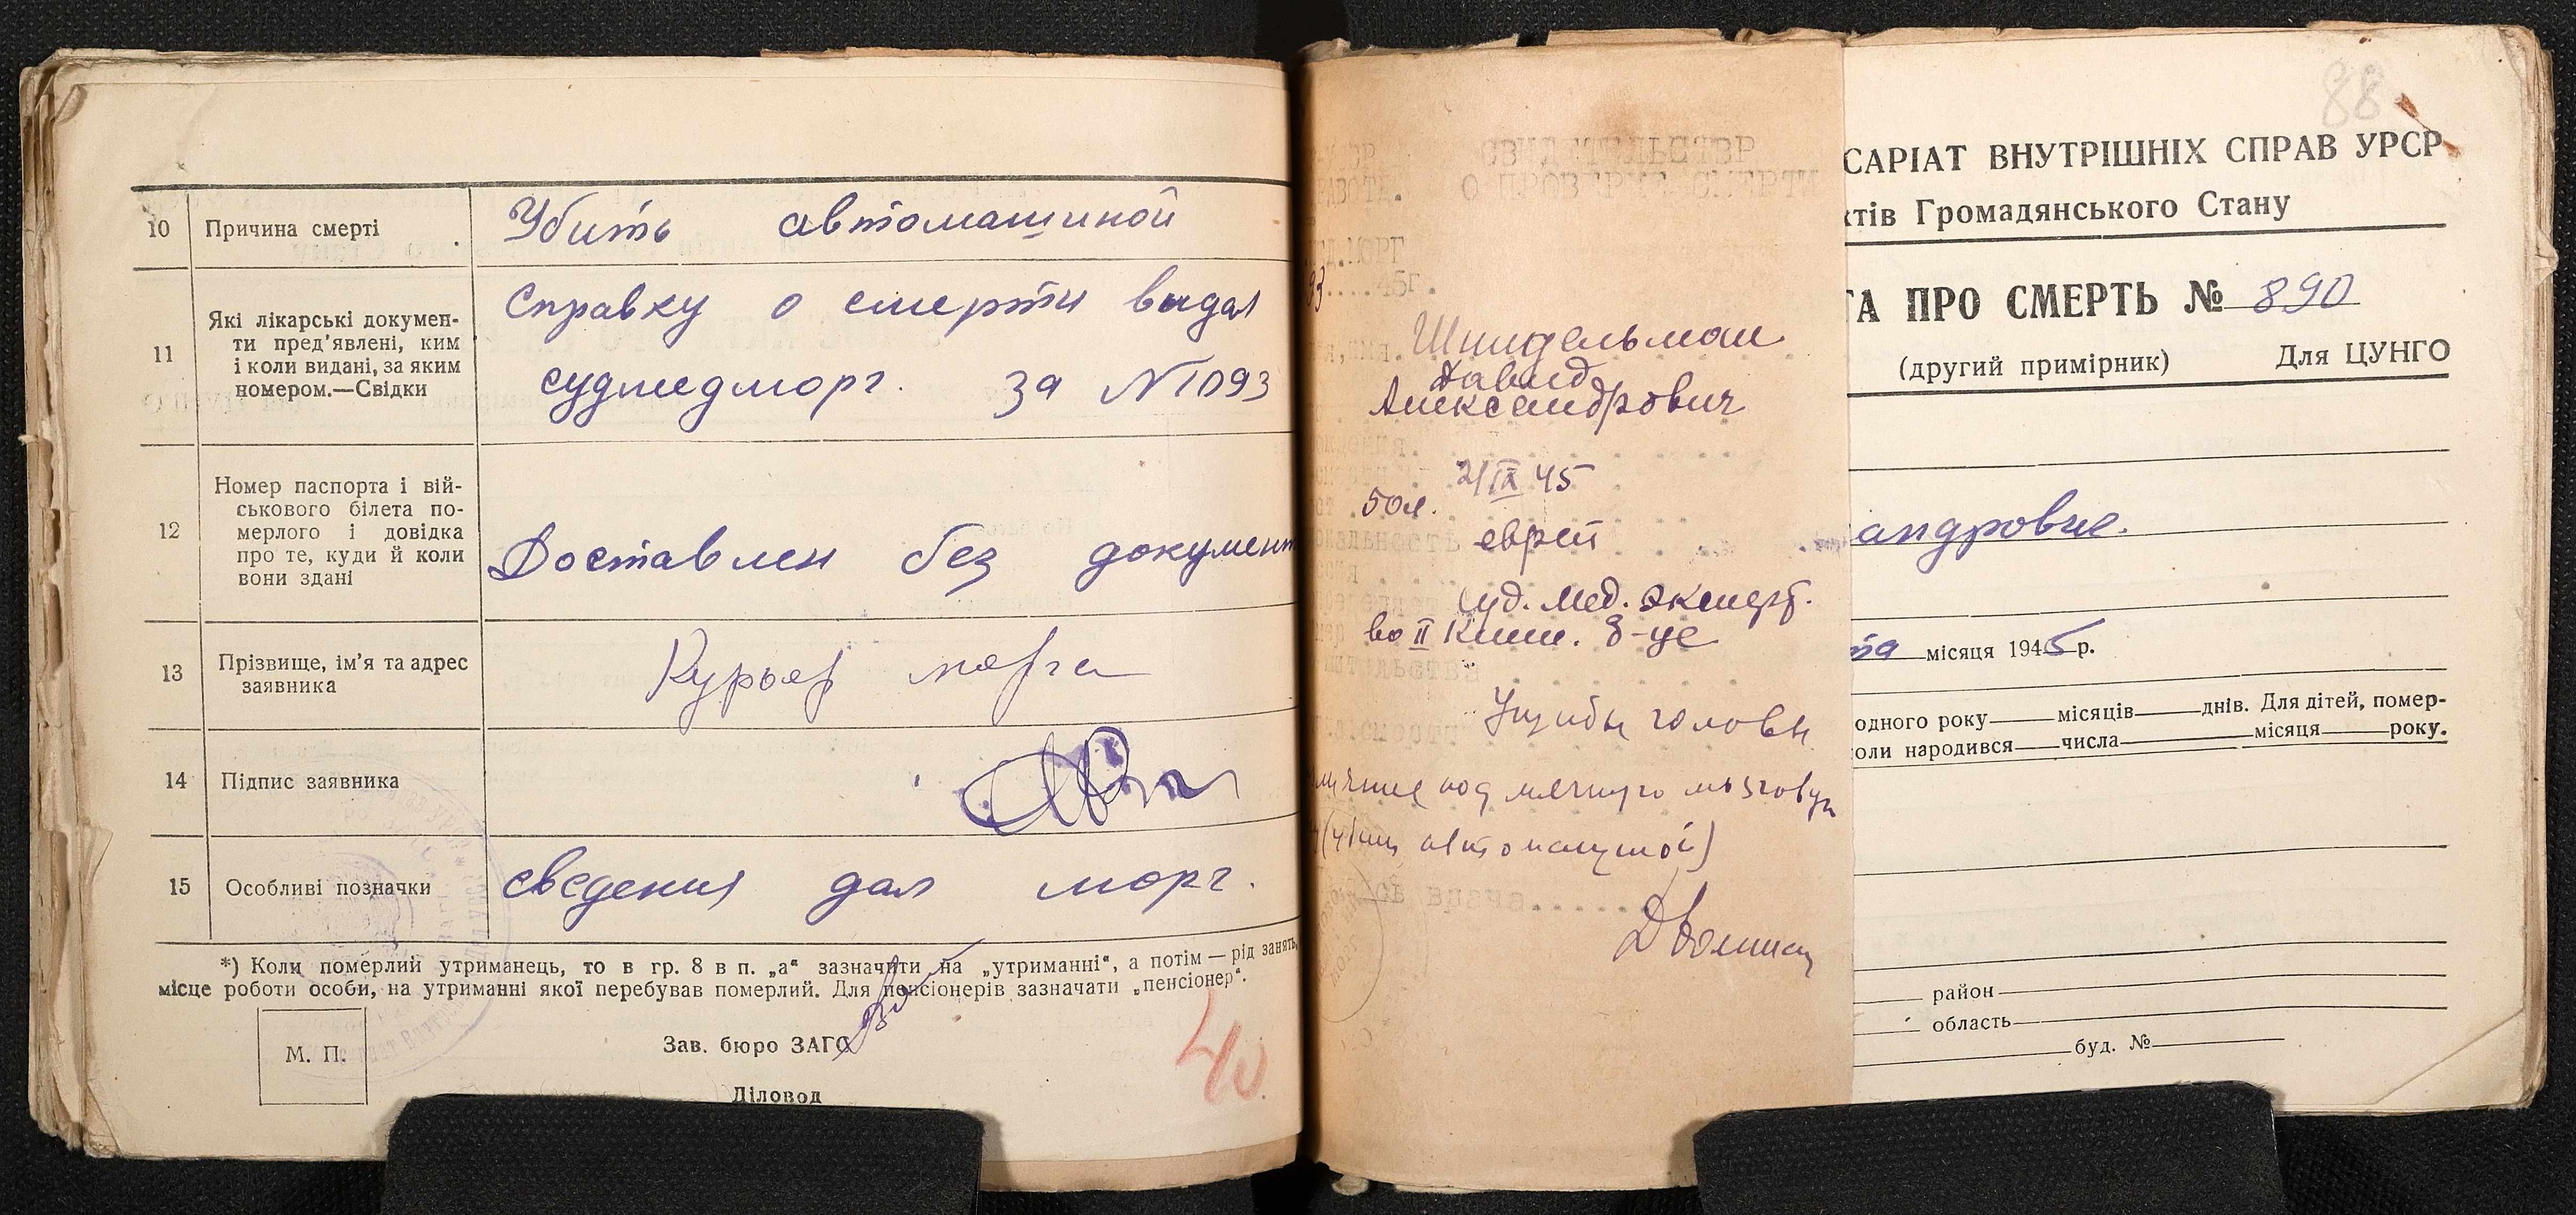 10 Причина смерті Убить автомашиной
11 Які лікарські докумен-
ти пред'явлені, ким
і коли видані, за яким
номером.—Свідки
Справку о смерти выдал
судмедморг. за N1093
12 Номер паспорта і вій-
ськового білета по-
мерлого і довідка
про те, куди й коли
вони здані
Доставлен без документ
13 Прізвище, ім'я та адрес
заявника
Курьер морга
14 Підпис заявника
15 Особливі позначки сведения дал морг.
*) Коли померлий утриманець, то в гр. 8 в п. „а“ зазначити на „утриманні“, а потім — рід занять,
місце роботи особи, на утриманні якої перебував померлий. Для пенсіонерів зазначати „пенсіонер“.
М. П.
Зав. бюро ЗАГС
Діловод
40
СВИДЕТЕЛЬСТВР
О ПРОВЕРКЕ СМЕРТИ
МОРТ
93 ....45г.
Шпигельман
Давид
Александрович
21 IX 45
50л.
еврей
Суд. мед. эксперт.
во II Клин. б-це
Ушибы головы
под мягкую мозговую
автомашиной)
до врача......
88
САРІАТ ВНУТРІШНІХ СПРАВ УРСР
ктів Громадянського Стану
ТА ПРО СМЕРТЬ № 890
(другий примірник) Для ЦУНГО
андрович.
та місяця 1945 р.
одного року місяців днів. Для дітей, помер-
коли народився числа місяця року.
район
область
буд. №